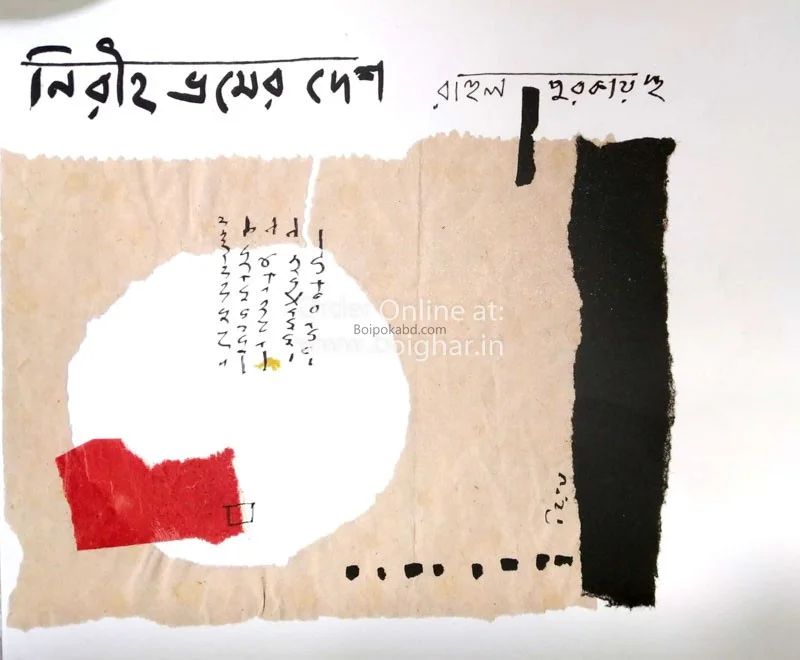 নিরীহ ভ্রমের দেশ
রাহুল পুরকায়স্থ
Order Online at:
Boipokabd.com
www.boighar.in